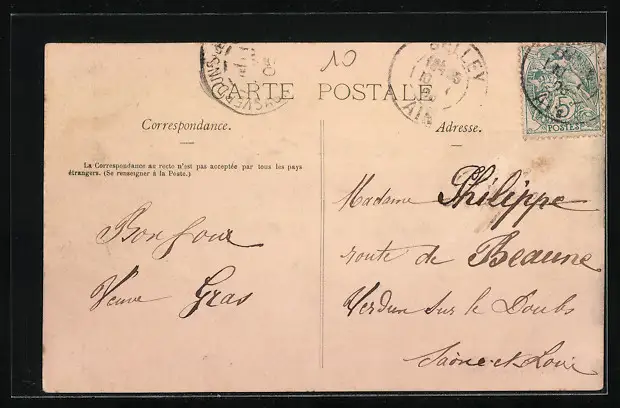 10
CARTE POSTALE
BELLEY
AIN
5
POSTES
Correspondance.
Adresse.
La Correspondance au recto n'est pas acceptée par tous les pays
étrangers. (Se renseigner à la Poste.)
Bonjour
Veuve Gras
Madame Philippe
route de Beaune
Verdun sur le Doubs
Saône-et-Loire